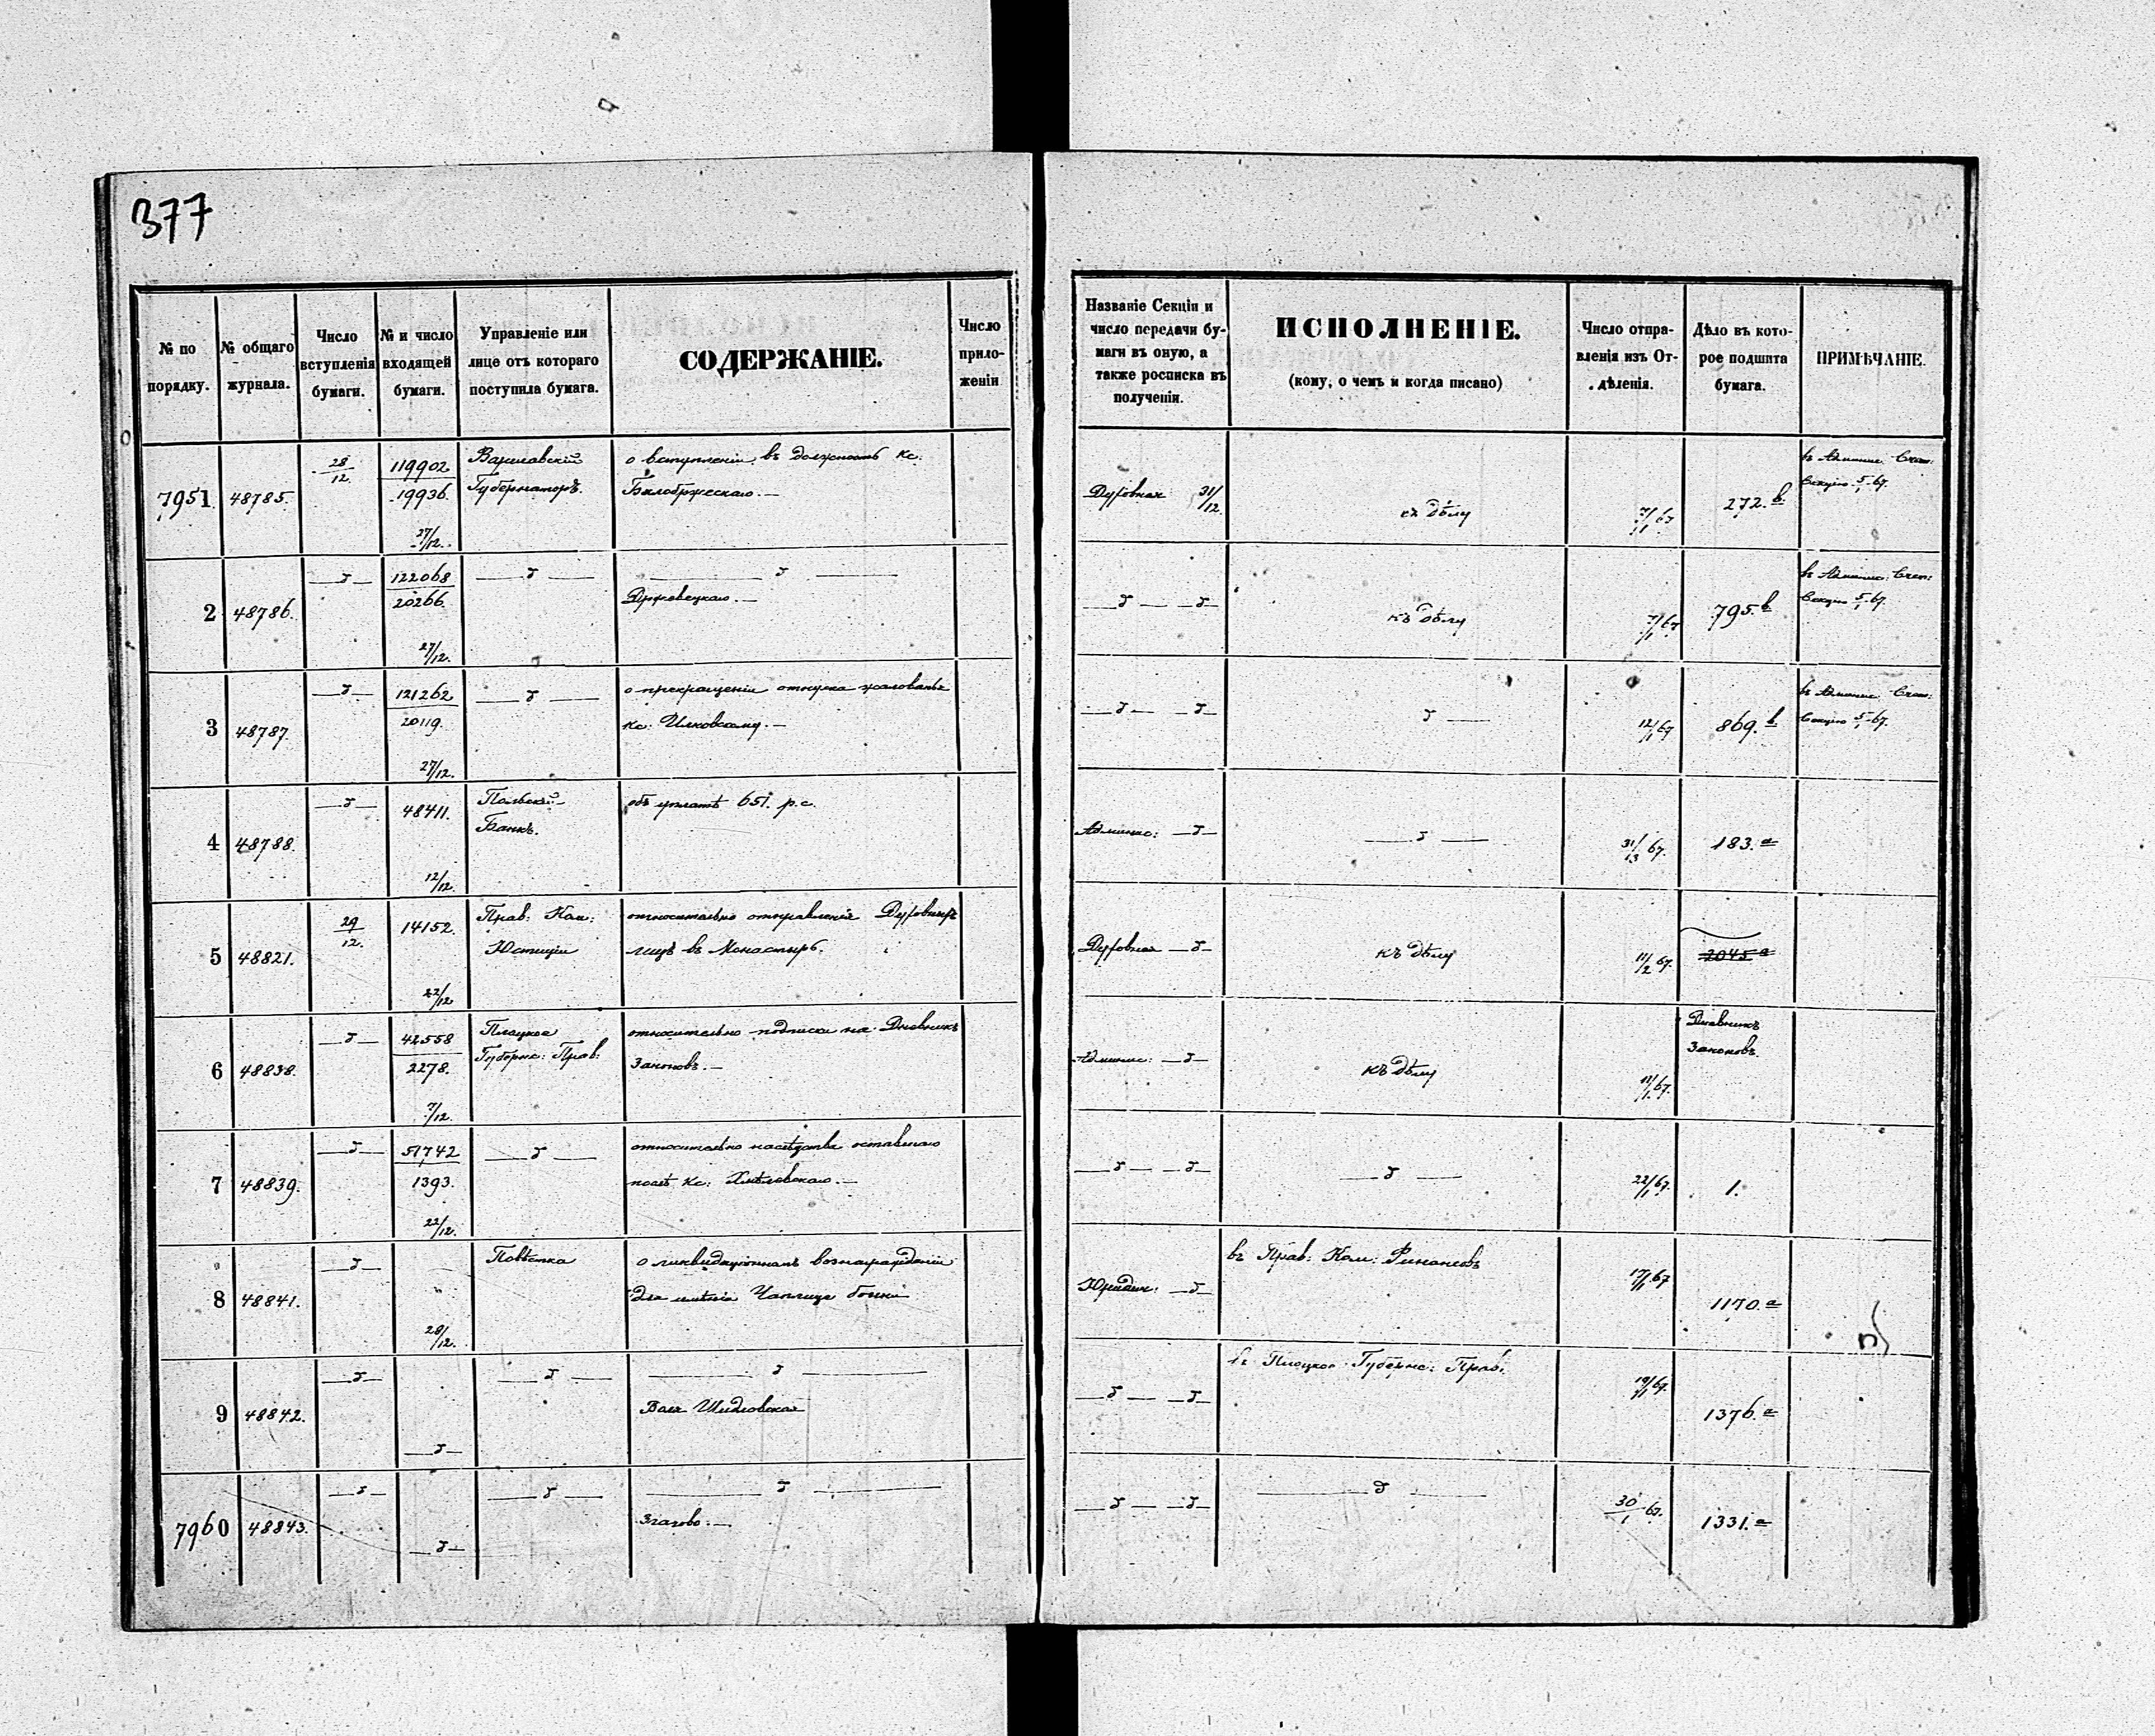 377
№ по порядку.
№ общаго журнала.
Число вступленія бумаги.
№ и число входящей бумаги.
Управленіе или лице отъ котораго поступила бумага.
СОДЕРЖАНІЕ.
Число прило-
женій
Названіе Секціи и
число передачи бу-
маги въ оную, а
также росписка въ
полученіи.
ИСПОЛНЕНІЕ.
(кому, о чемъ и когда писано)
Число отпра-
вленія изъ От-
дѣленія.
Дѣло въ кото-
рое подшита
бумага.
ПРИМѢЧАНІЕ.
7951. 48785. 28/12. 119902 / 19936. 27/12. Варшавскій Губернаторъ.
о вступленіи въ должность кс.
Бялобржескаго.—
Духовная 31/12. къ дѣлу 7/1 67 272. b.
въ Админис. Счет:
Секцію 5/1 67.
2 48786. —„— 122068 / 20266. 27/12. —„—
—„—
Држевецкаго.—
—„— —„— къ дѣлу 7/1 67 795. b.
въ Админис: Счет:
Секцію 5/1 67.
3 48787. —„— 121262 / 20119. 27/12. —„—
о прекращеніи отпуска жалованья
кс:
—„— —„— „— 12/1 67 869. b.
въ Админис. Счет:
Секцію 5/1 67.
4 48788. —„— 48411. 12/12. Польскій Банкъ.
объ уплатѣ 651. р. с.
Админис: —„— —„— 67. 183. a
5 48821. 29/12. 14152. 22/12 Прав: Ком: Юстиціи
относительно отправленія Духовныхъ
лицъ въ Монастырь.
Духовная —„— къ дѣлу 11/2 67. 2045 a
6 48838. —„— 42558 / 2278. 7/12. Плоцкое Губернс: Прав:
относительно подписки на Дневникъ
Законовъ.—
Админис: —„— къ дѣлу 11/1 67. Дневникъ Законовъ.
7 48839. —„— 51742 / 1393. 22/12. —„—
относительно наслѣдства оставшаго
послѣ кс: Хмѣловскаго.—
—„— —„— —„— 22/1 67. 1.
8 48841. —„— „ 28/12. Повѣстка
о ликвидаціонномъ вознагражденіи
для имѣнія
Юридич: —„— въ Прав: Ком: Финансовъ 17/1 67 1170. a
9 48842. —„— —„— —„—
—„—
Воля Шидловская
—„— —„— въ Плоцкое Губернс: Прав: 19/1 67. 1376. a
7960 48843. —„— —„— —„—
—„—
—„— —„— —„— 30/1 67. 1331. a